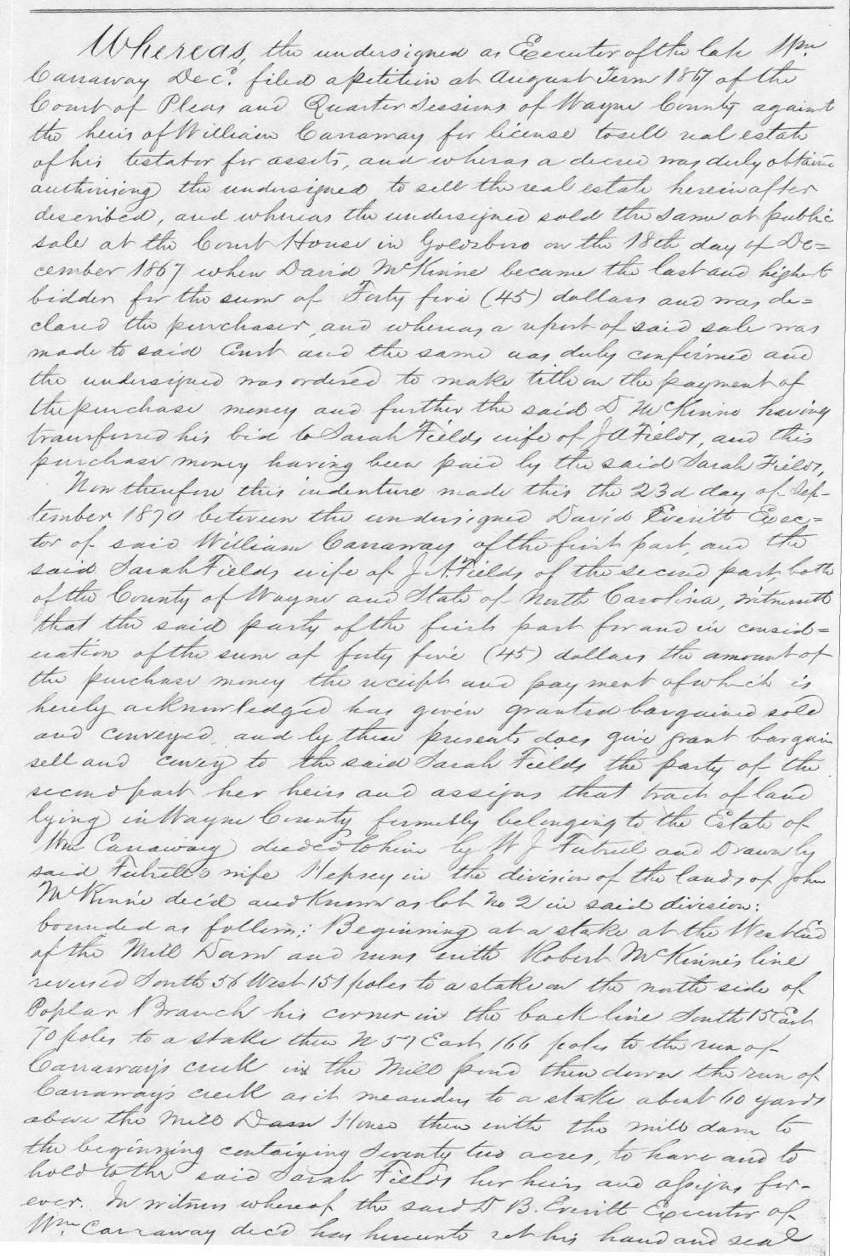 Whereas, the undersigned as Executor of the late Wm
Carraway Decd. filed a petition at August Term 1867 of the
Court of Pleas and Quarter Sessions of Wayne County against
the heirs of William Carraway for license to sell real estate
of his testator for assets, and wheras a decree was duly obtain
authorising the undersigned to sell the real estate herein after
described, and whereas the undersigned sold the same at public
sale at the Court House in Goldsboro on the 18th day of De=
cember 1867 when David McKinne became the last and highest
bidder for the sum of Forty five (45) dollars and was de=
clared the purchaser, and whereas a report of said sale was
made to said Court and the same was duly confirmed and
the undersigned was ordered to make title on the payment of
the purchase money and further the said D McKinne having
transferred his bid to Sarah Fields wife of J A Fields, and this
purchase money having been paid by the said Sarah Fields,
Now therefore this indenture made this the 23d day of Sep-
tember 1870 between the undersigned David Everitt Exec=
tor of said William Carraway of the first part, and the
said Sarah Fields wife of J. A. Fields of the second part, both
of the County of Wayne and State of North Carolina, witnesseth
that the said party of the first part for and in consid=
eration of the sum of forty five (45) dollars the amount of
the purchase money the receipt and payment of which is
hereby acknowledged has given granted bargained sold
and conveyed and by these presents does give grant bargain
sell and convey to the said Sarah Fields the party of the
second part her heirs and assigns that track of land
lying in Wayne County formerly belonging to the Estate of
Wm Carraway deeded to him by W J Futrell and Drawn by
said Futrell's wife Hepsey in the division of the lands of John
McKinne dec'd and Known as lot No 2 in said division:
bounded as follows: Beginning at a stake at the West End
of the Mill Dam and runs with Robert McKinne's line
reversed South 56 West 151 poles to a stake on the north side of
Poplar Branch his corner in the back line South 15 East
70 poles to a stake then N 57 East 166 poles to the run of
Carraway's creek in the Mill pond then down the run of
Carraway's creek as it meanders to a stake about 60 yards
above the Mill Dam House then with the mill dam to
the beginning containing Seventy two acres, to have and to
hold to the said Sarah Fields her heirs and assigns for-
ever. In witness whereof the said D B. Everitt Executor of
Wm Carraway dec'd has hereunto set his hand and seal